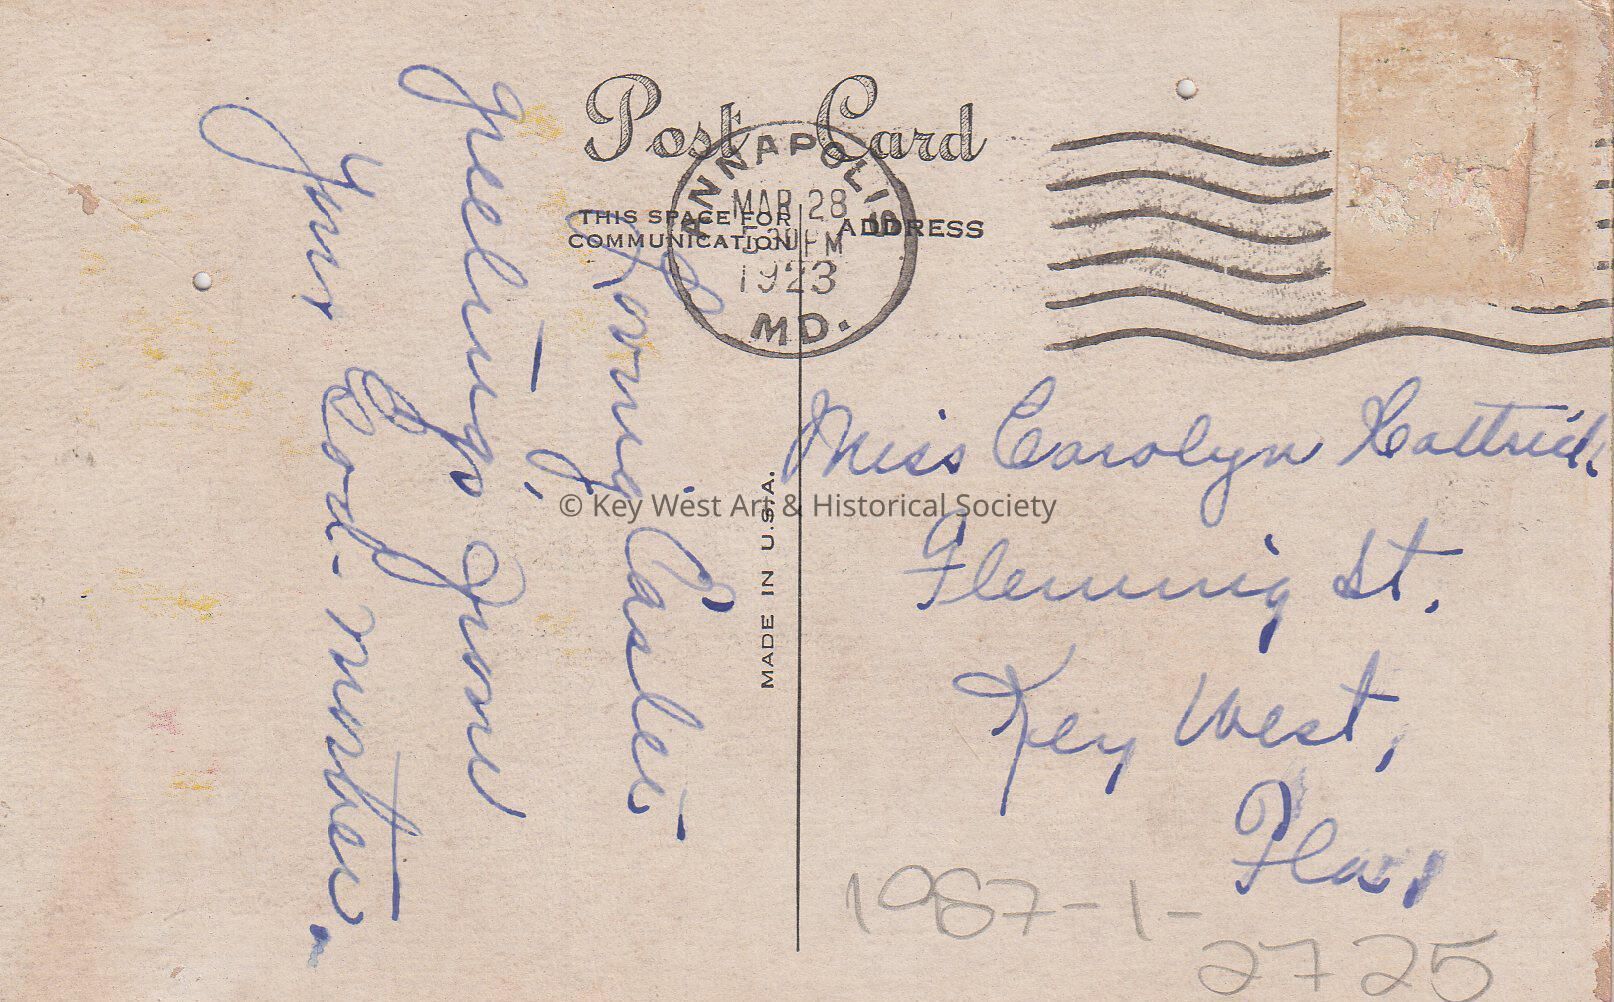 Post Card
THIS SPACE FOR
COMMUNICATION
ADDRESS
ANNAPOLIS
MAR 28
530 PM
1923
MD.
Loving Easter
greetings, from
Your God-mother.
MADE IN U.S.A.
Miss Carolyn
Fleming St.
Key West,
Fla.
1987-1-
2725
© Key West Art & Historical Society